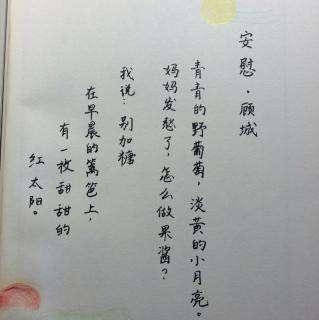 安慰·顾城
青青的野葡萄，淡黄的小月亮。
妈妈发愁了，怎么做果酱？
我说：别加糖
在早晨的篱笆上，
有一枚甜甜的
红太阳。